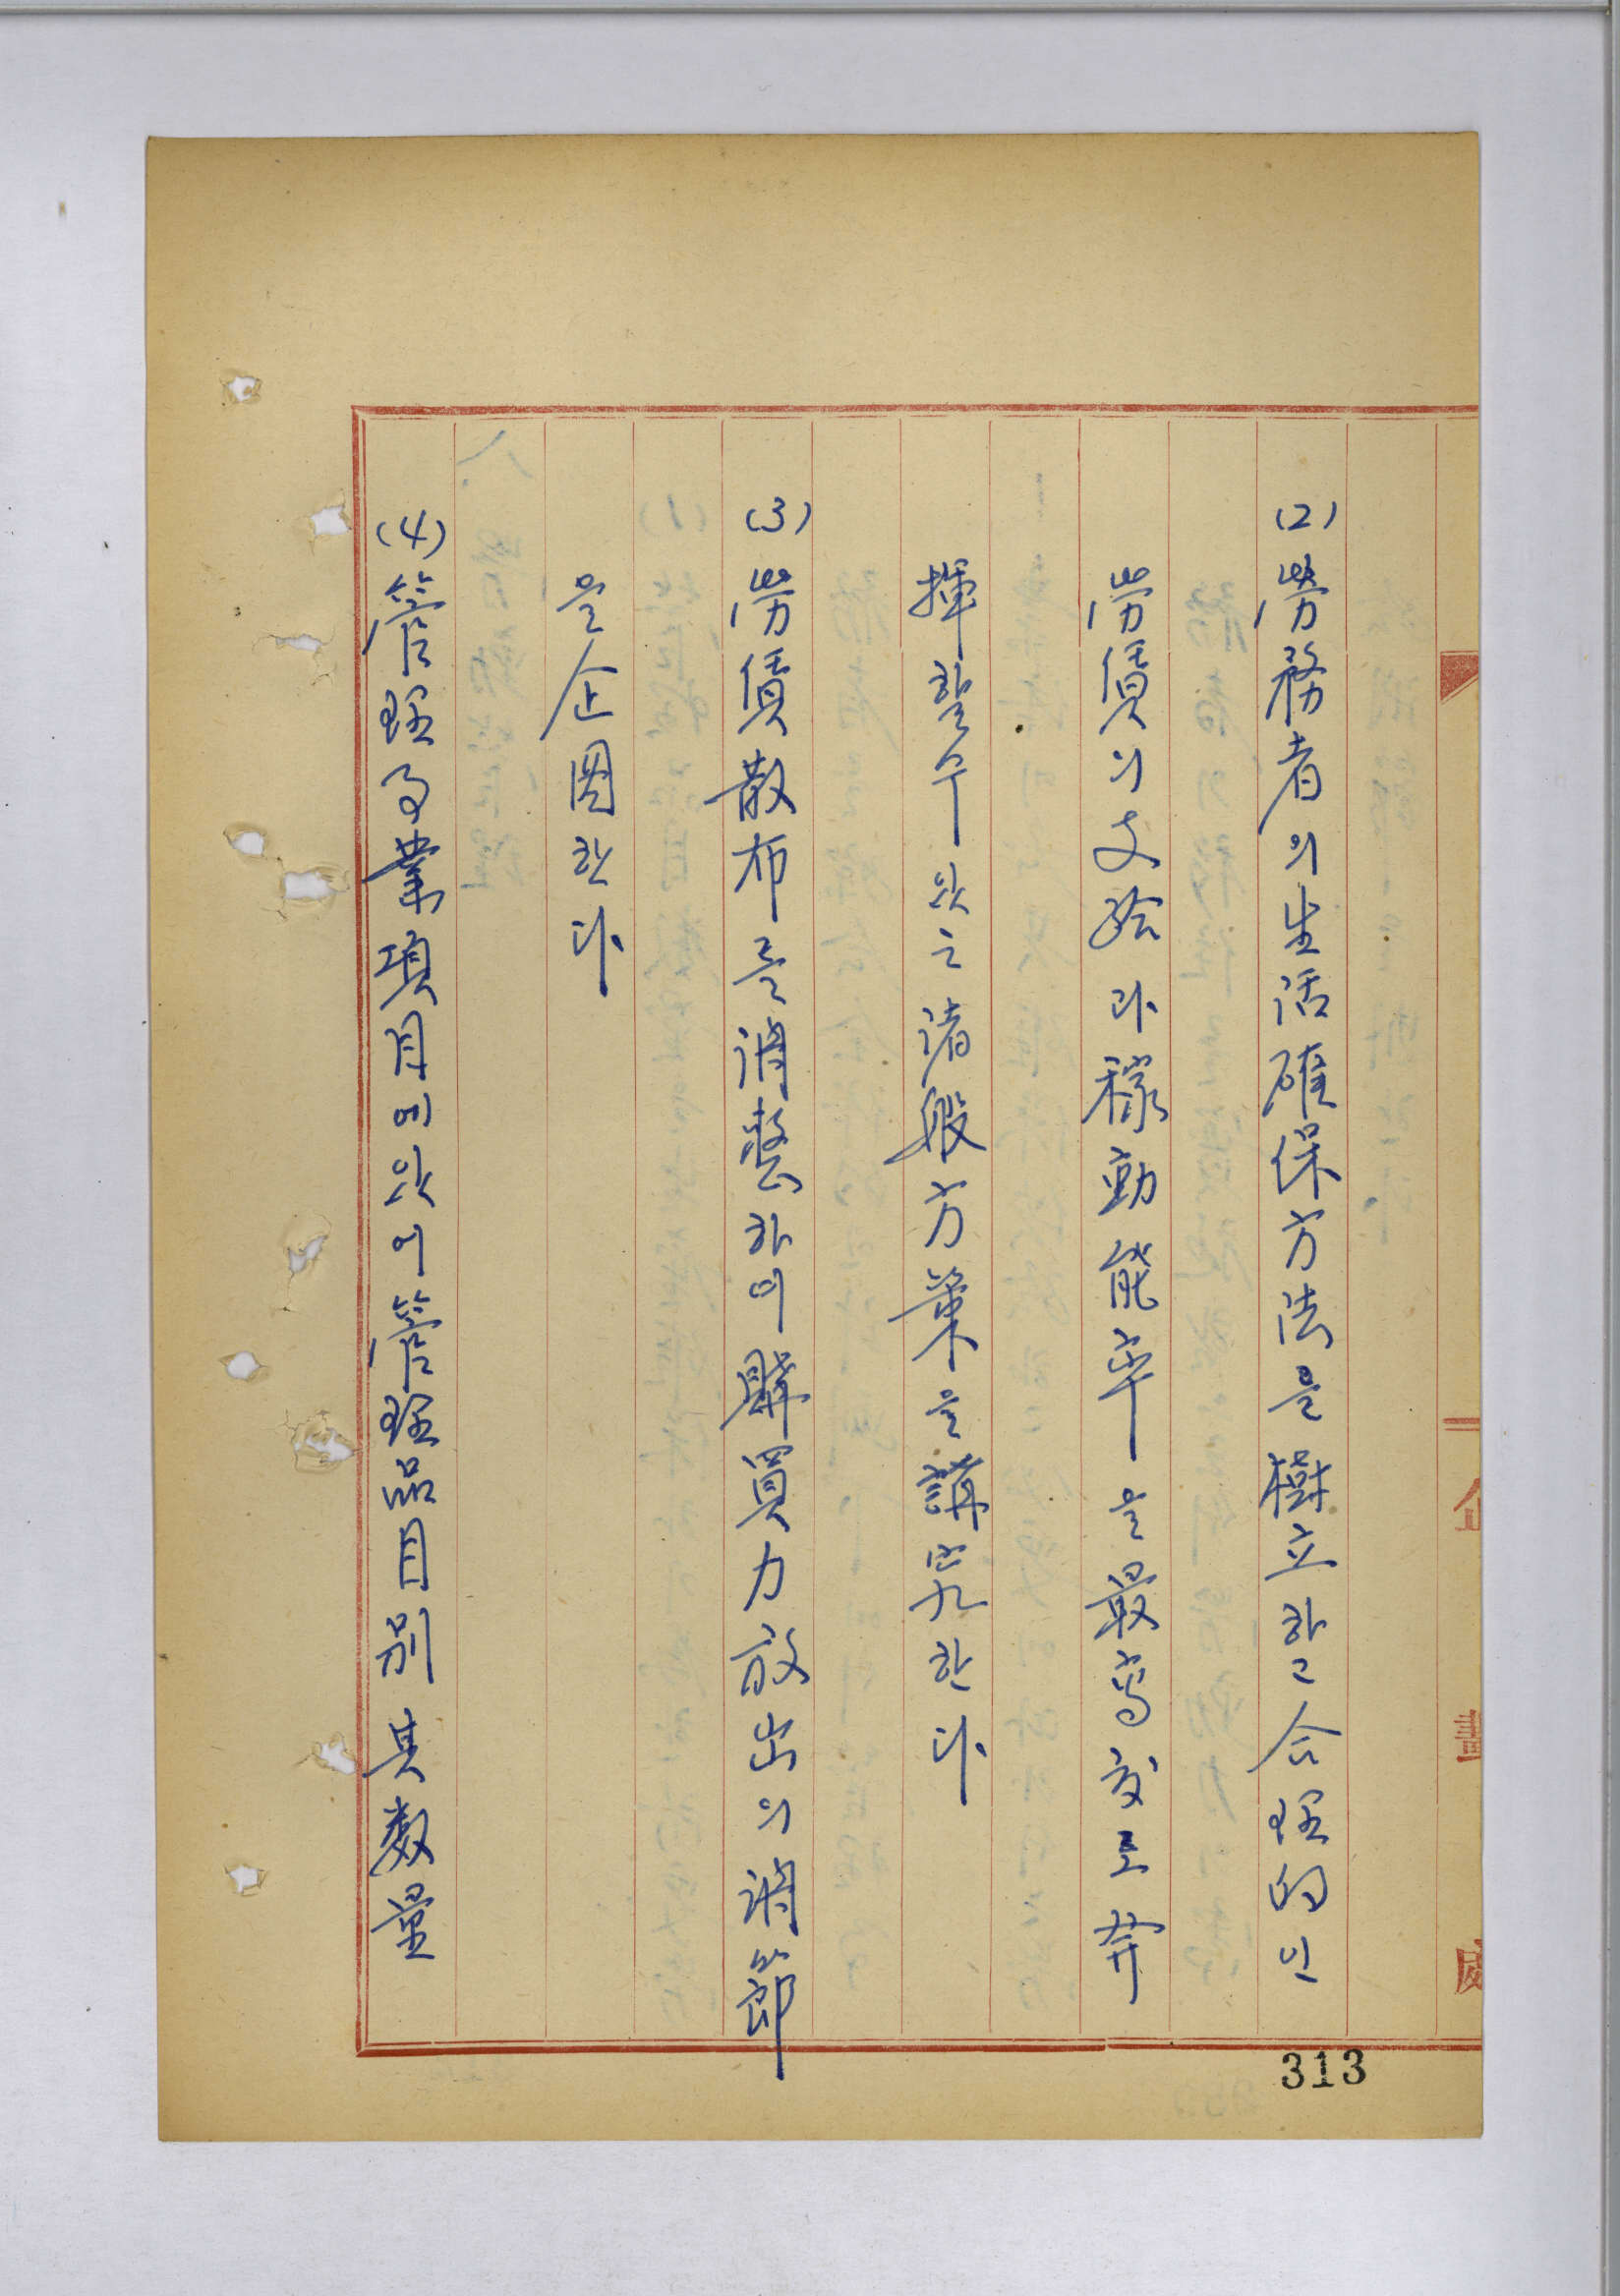 (2) 勞務者의 生活確保方法을 樹立하고 合理的인
勞賃의 支給과 稼動能率을 最高度로 發
揮할수 있는 諸般方策을 講究한다
(3) 勞賃散布를 調整하여 購買力放出의 調節
을 企圖한다
(4) 管理 面에 있어 管理 面 其 數量
企
313